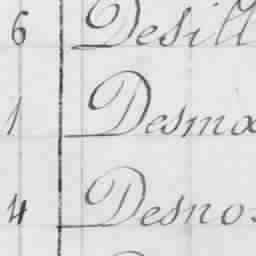 6 Desill
1 Desma
4 Desno